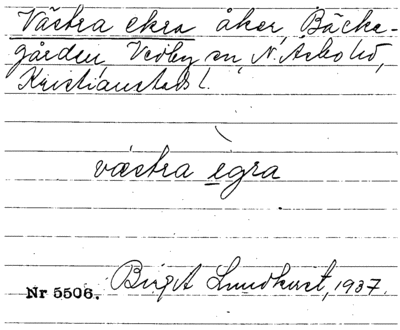 Västra ekra åker, Bäcka-
gården, Vedby sn, N. Åsbo hd,
Kristianstads l.
västra egra
Nr 5506. Birgit Lundkvist, 1937.